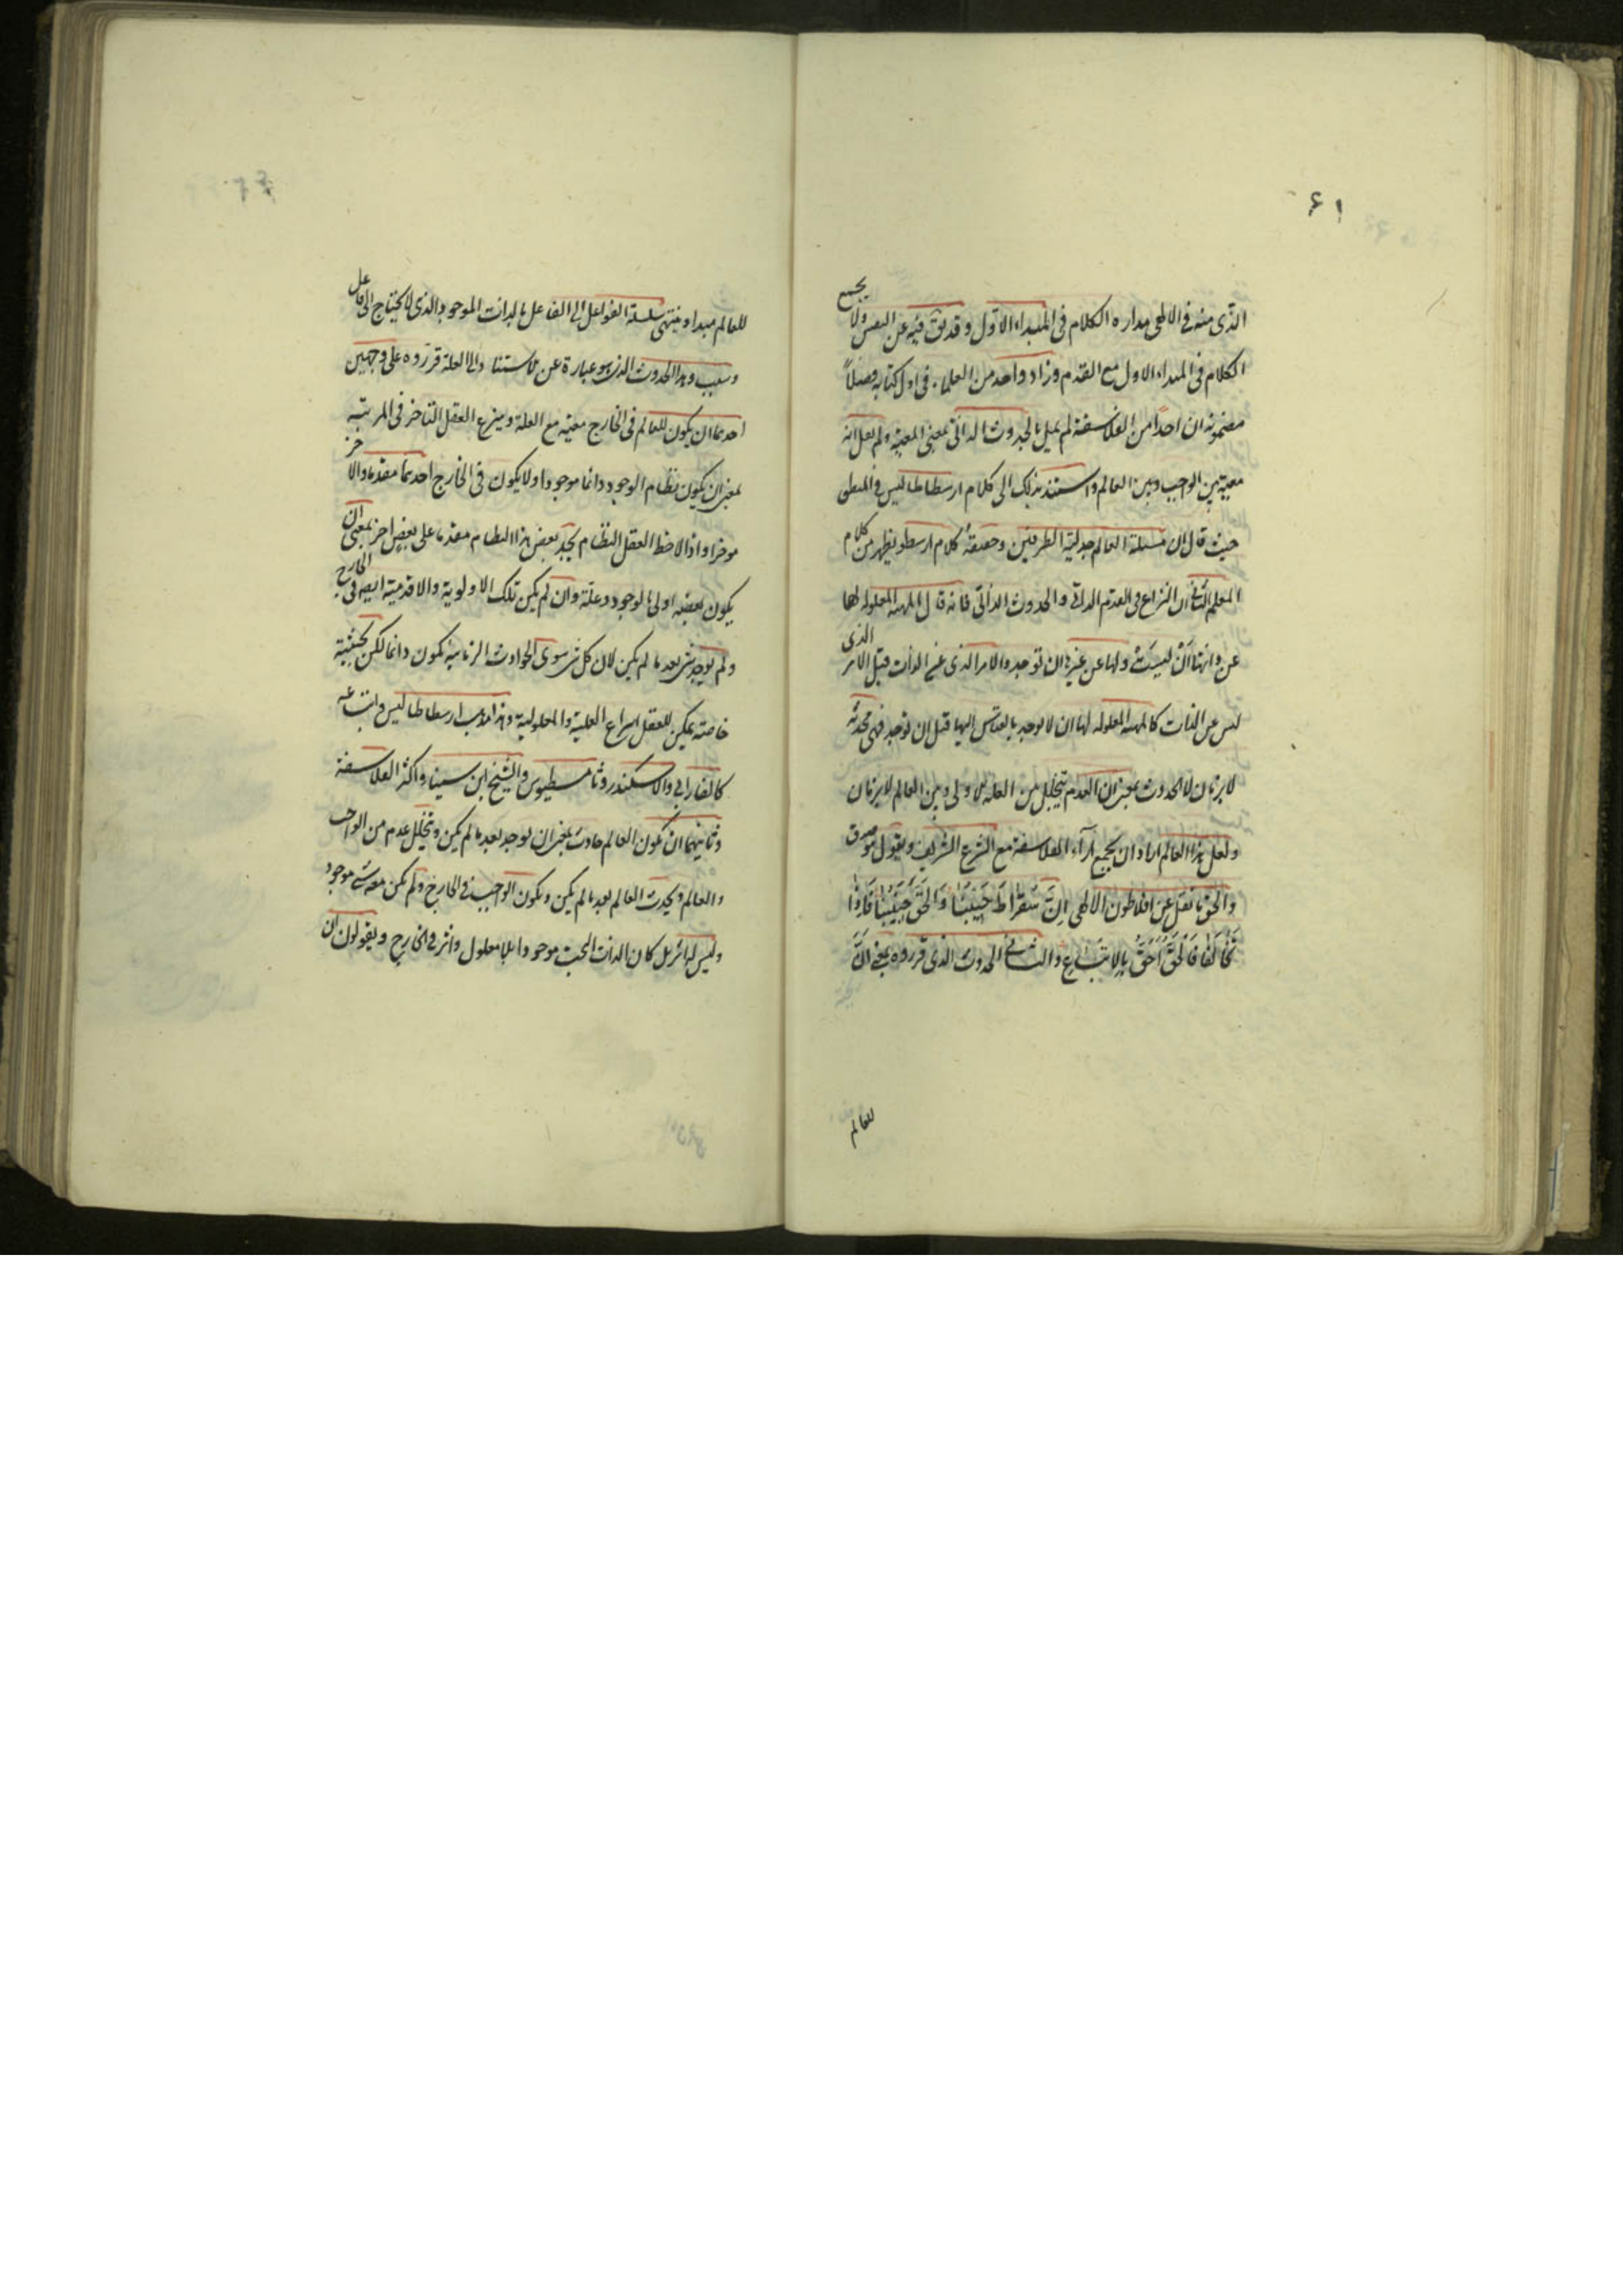 ۶۱
الذی منه فی الالهی مداره الکلام فی المبداء الاول و قد یق فیه عن النفس ولا یجمع
الکلام فی المبداء الاول مع القدم وزاد واحد من العلماء فی اول کتابه فصلاً
مضمونه ان احداً من الفلاسفة لم یمل بالحدوث الذاتی بمعنی المعیة ولم یقل انه
معیة بین الواجب وبین العالم واستند بذلک الی کلام ارسطاطالیس فی المنطق
حیث قال ان مسئلة العالم جدلیة الطرفین وحقیقة کلام ارسطو یظهر من کلام
المعلم الثانی ان النزاع فی القدم الذاتی والحدوث الذاتی فانه قال المهیة المعلولة لها
عن ذاتها ان لیست ولها عن غیرها ان توجد والامر الذی عن الذات قبل الامر الذی
لیس عن الذات کالمهیة المعلوله لها ان لا توجد بالقیاس الیها قبل ان توجد فهی محدثة
لا بزمان لا الحدوث بمعنی ان العدم یتخلل بین العلة الاولی وبین العالم لا بزمان
ولعل هذا العالم اراد ان یجمع آراء الفلاسفة مع الشرع الشریف ویقول
والحق ما نقل عن افلاطون الالهی ان سقراط حبیبنا والحق حبیبنا فاذا
تخالفا فالحق احق بالاتباع والثانی الحدوث الذی قرروه یعنی ان
للعالم
للعالم مبداء و ینتهی سلسلة الفواعل الی الفاعل بالذات الموجود الذی لا یحتاج الی فاعل
وسبب وهذا الحدوث الذی هو عبارة عن الاستناد الی العلة قرروه علی وجهین
احدهما ان یکون للعالم فی الخارج معیة مع العلة وینزع العقل التاخر فی المرتبه
بمعنی ان یکون نظام الوجود دائما موجودا ولا یکون فی الخارج احدهما مقدما والاخر
موخرا واذا لاحظ العقل النظام یجد بعض هذا النظام مقدما علی بعض اخر بمعنی ان
یکون بعضه اولی بالوجود وعلة وان لم یکن تلک الاولویة والاقدمیة ایضا فی الخارج
ولم یوجد شی بعد ما لم یکن لان کل شی سوی الحوادث الزمانیة تکون دائما لکن بحیثیة
خاصة یمکن للعقل انتزاع العلیة والمعلولیة وهذا مذهب ارسطاطالیس واتباعه
کالفارابی والاسکندر وثامسطیوس والشیخ ابن سینا واکثر الفلاسفة
وثانیهما ان تکون العالم حادث بمعنی ان یوجد بعد ما لم یکن ویتخلل عدم من الواجب
والعالم ویحدث العالم بعد ما لم یکن ویکون الواجب فی الخارج ولم یکن معه شی موجود
ولیس له اثر بل کان الذات البحت موجودا بلا معلول واثر فی الخارج ویقولون ان